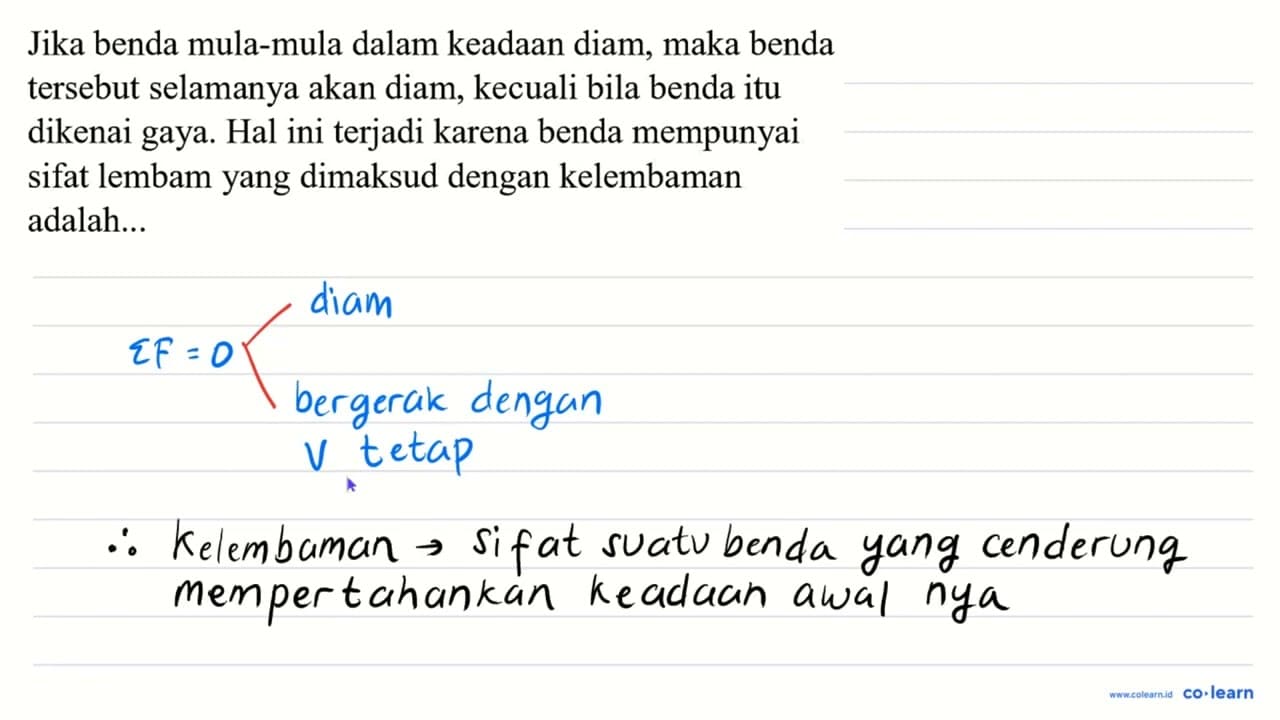 Jika benda mula-mula dalam keadaan diam, maka benda
tersebut selamanya akan diam, kecuali bila benda itu
dikenai gaya. Hal ini terjadi karena benda mempunyai
sifat lembam yang dimaksud dengan kelembaman
adalah...
diam
ΣF = 0
bergerak dengan
V tetap
∴ Kelembaman → sifat suatu benda yang cenderung
mempertahankan keadaan awal nya
www.colearn.id co·learn